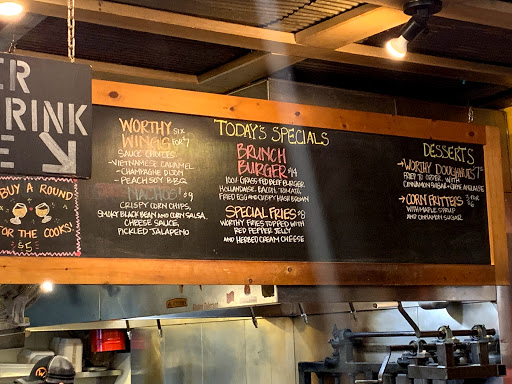 ER
DRINK
E
BUY A ROUND
FOR THE COOKS!
TODAY'S SPECIALS
WORTHY SIX
WINGS FOR $7
SAUCE CHOICES
- VIETNAMESE CARAMEL
- CHAMPAGNE DIJON
- PEACH SOY BBQ
NACHOS! $9
CRISPY CORN CHIPS,
SMOKY BLACK BEAN AND CORN SALSA,
CHEESE SAUCE,
PICKLED JALAPENO
BRUNCH
BURGER $14
100% GRASS FED BEEF BURGER,
HOLLANDAISE, BACON, TOMATO,
FRIED EGG AND CRISPY HASH BROWN
SPECIAL FRIES $8
WORTHY FRIES TOPPED WITH
RED PEPPER JELLY
AND HERBED CREAM CHEESE
DESSERTS
WORTHY DOUGHNUTS $7
FRIED TO ORDER WITH
CINNAMON SUGAR + CRÈME ANGLAISE
CORN FRITTERS
WITH MAPLE SYRUP
AND CINNAMON SUGAR